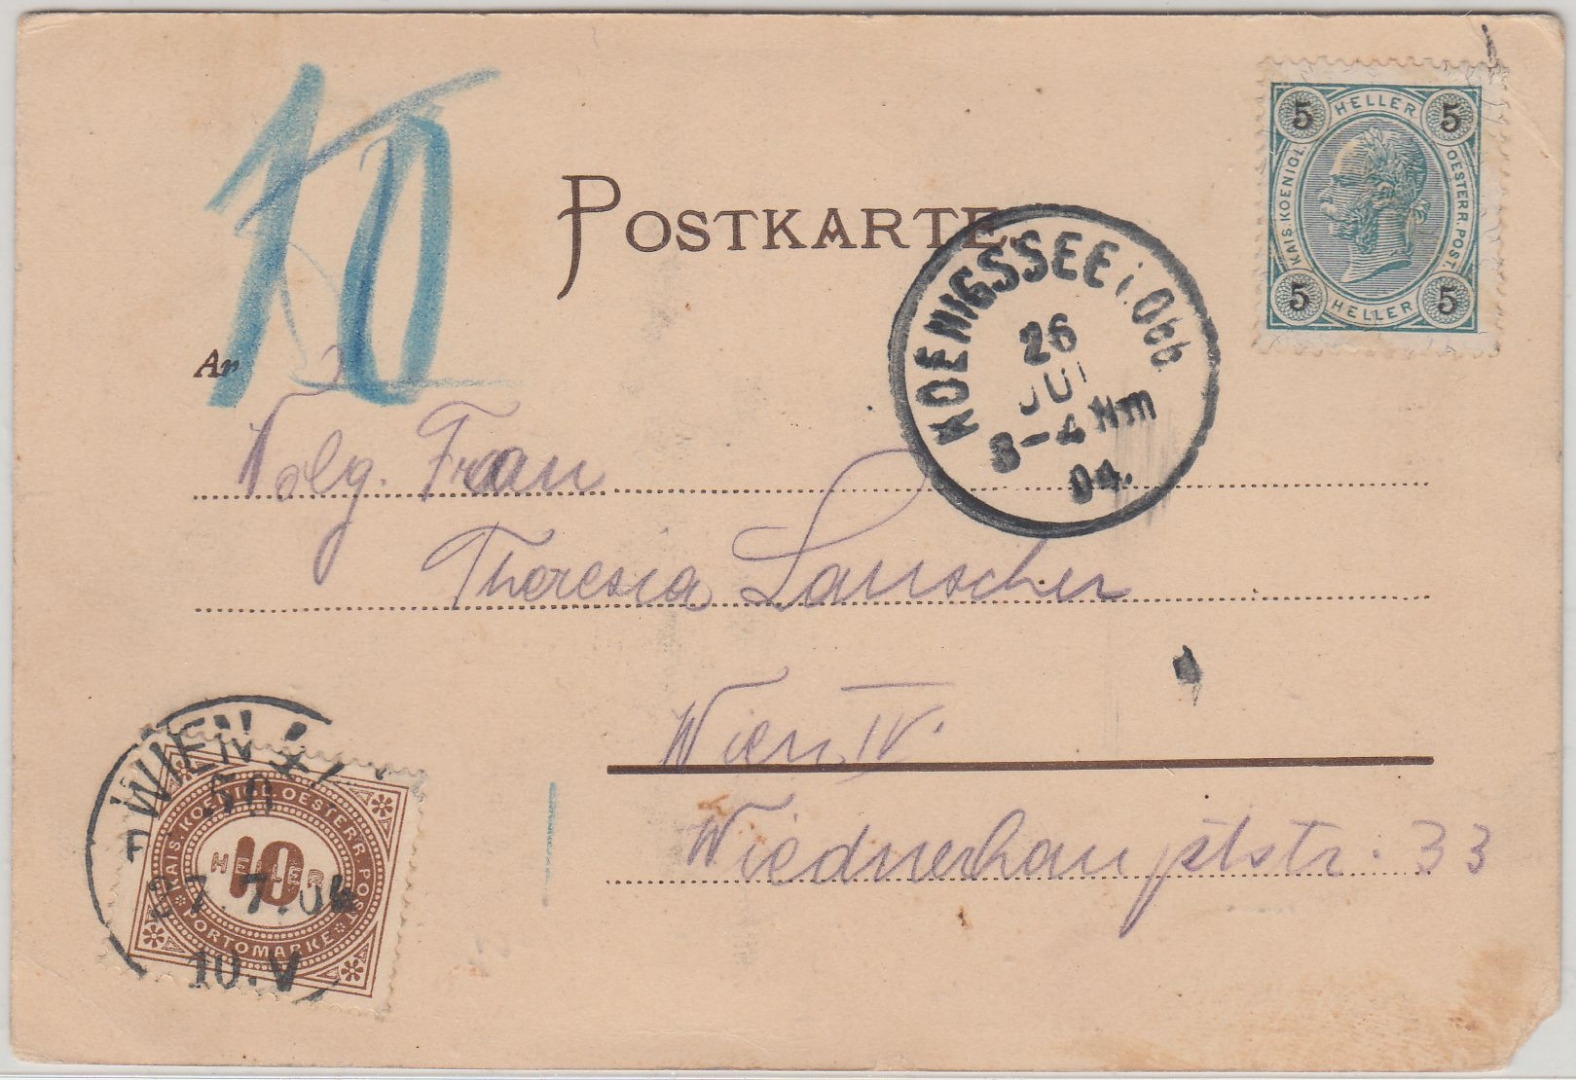 10
5 HELLER 5
KAIS. KOENIGL. OESTERR. POST.
5 HELLER 5
POSTKARTE.
KOENIGSSEE i. Obb.
26
JUL
3-4 Nm
04.
An
Frau
Theresia Lauscher
Wien IV.
Wiednerhauptstr. 33
WIEN 4/1
50
KAIS. KOENIGL. OESTERR. POST
10
HELLER
27.7.04
PORTOMARKE
10.V